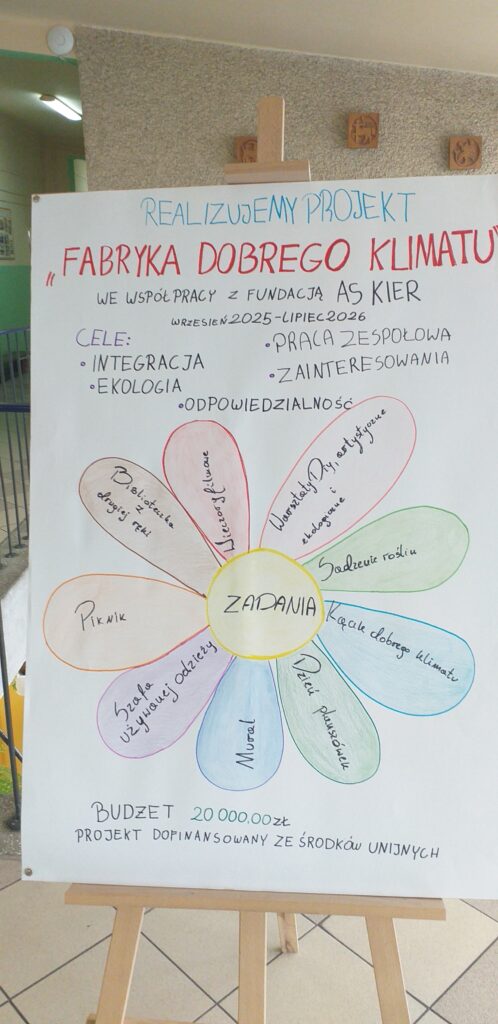 REALIZUJEMY PROJEKT
„FABRYKA DOBREGO KLIMATU"
WE WSPÓŁPRACY Z FUNDACJĄ AS KIER
WRZESIEŃ 2025-LIPIEC 2026
CELE:
• INTEGRACJA
• EKOLOGIA
• PRACA ZESPOŁOWA
• ZAINTERESOWANIA
• ODPOWIEDZIALNOŚĆ
Wieczory filmowe
Warsztaty Diy, artystyczne
i
ekologiczne
Sadzenie roślin
Kącik dobrego klimatu
Dzień planszówek
Mural
Szafa
używanej odzieży
Piknik
Biblioteczka
z
drugiej ręki
ZADANIA
BUDŻET 20 000,00 zł
PROJEKT DOFINANSOWANY ZE ŚRODKÓW UNIJNYCH